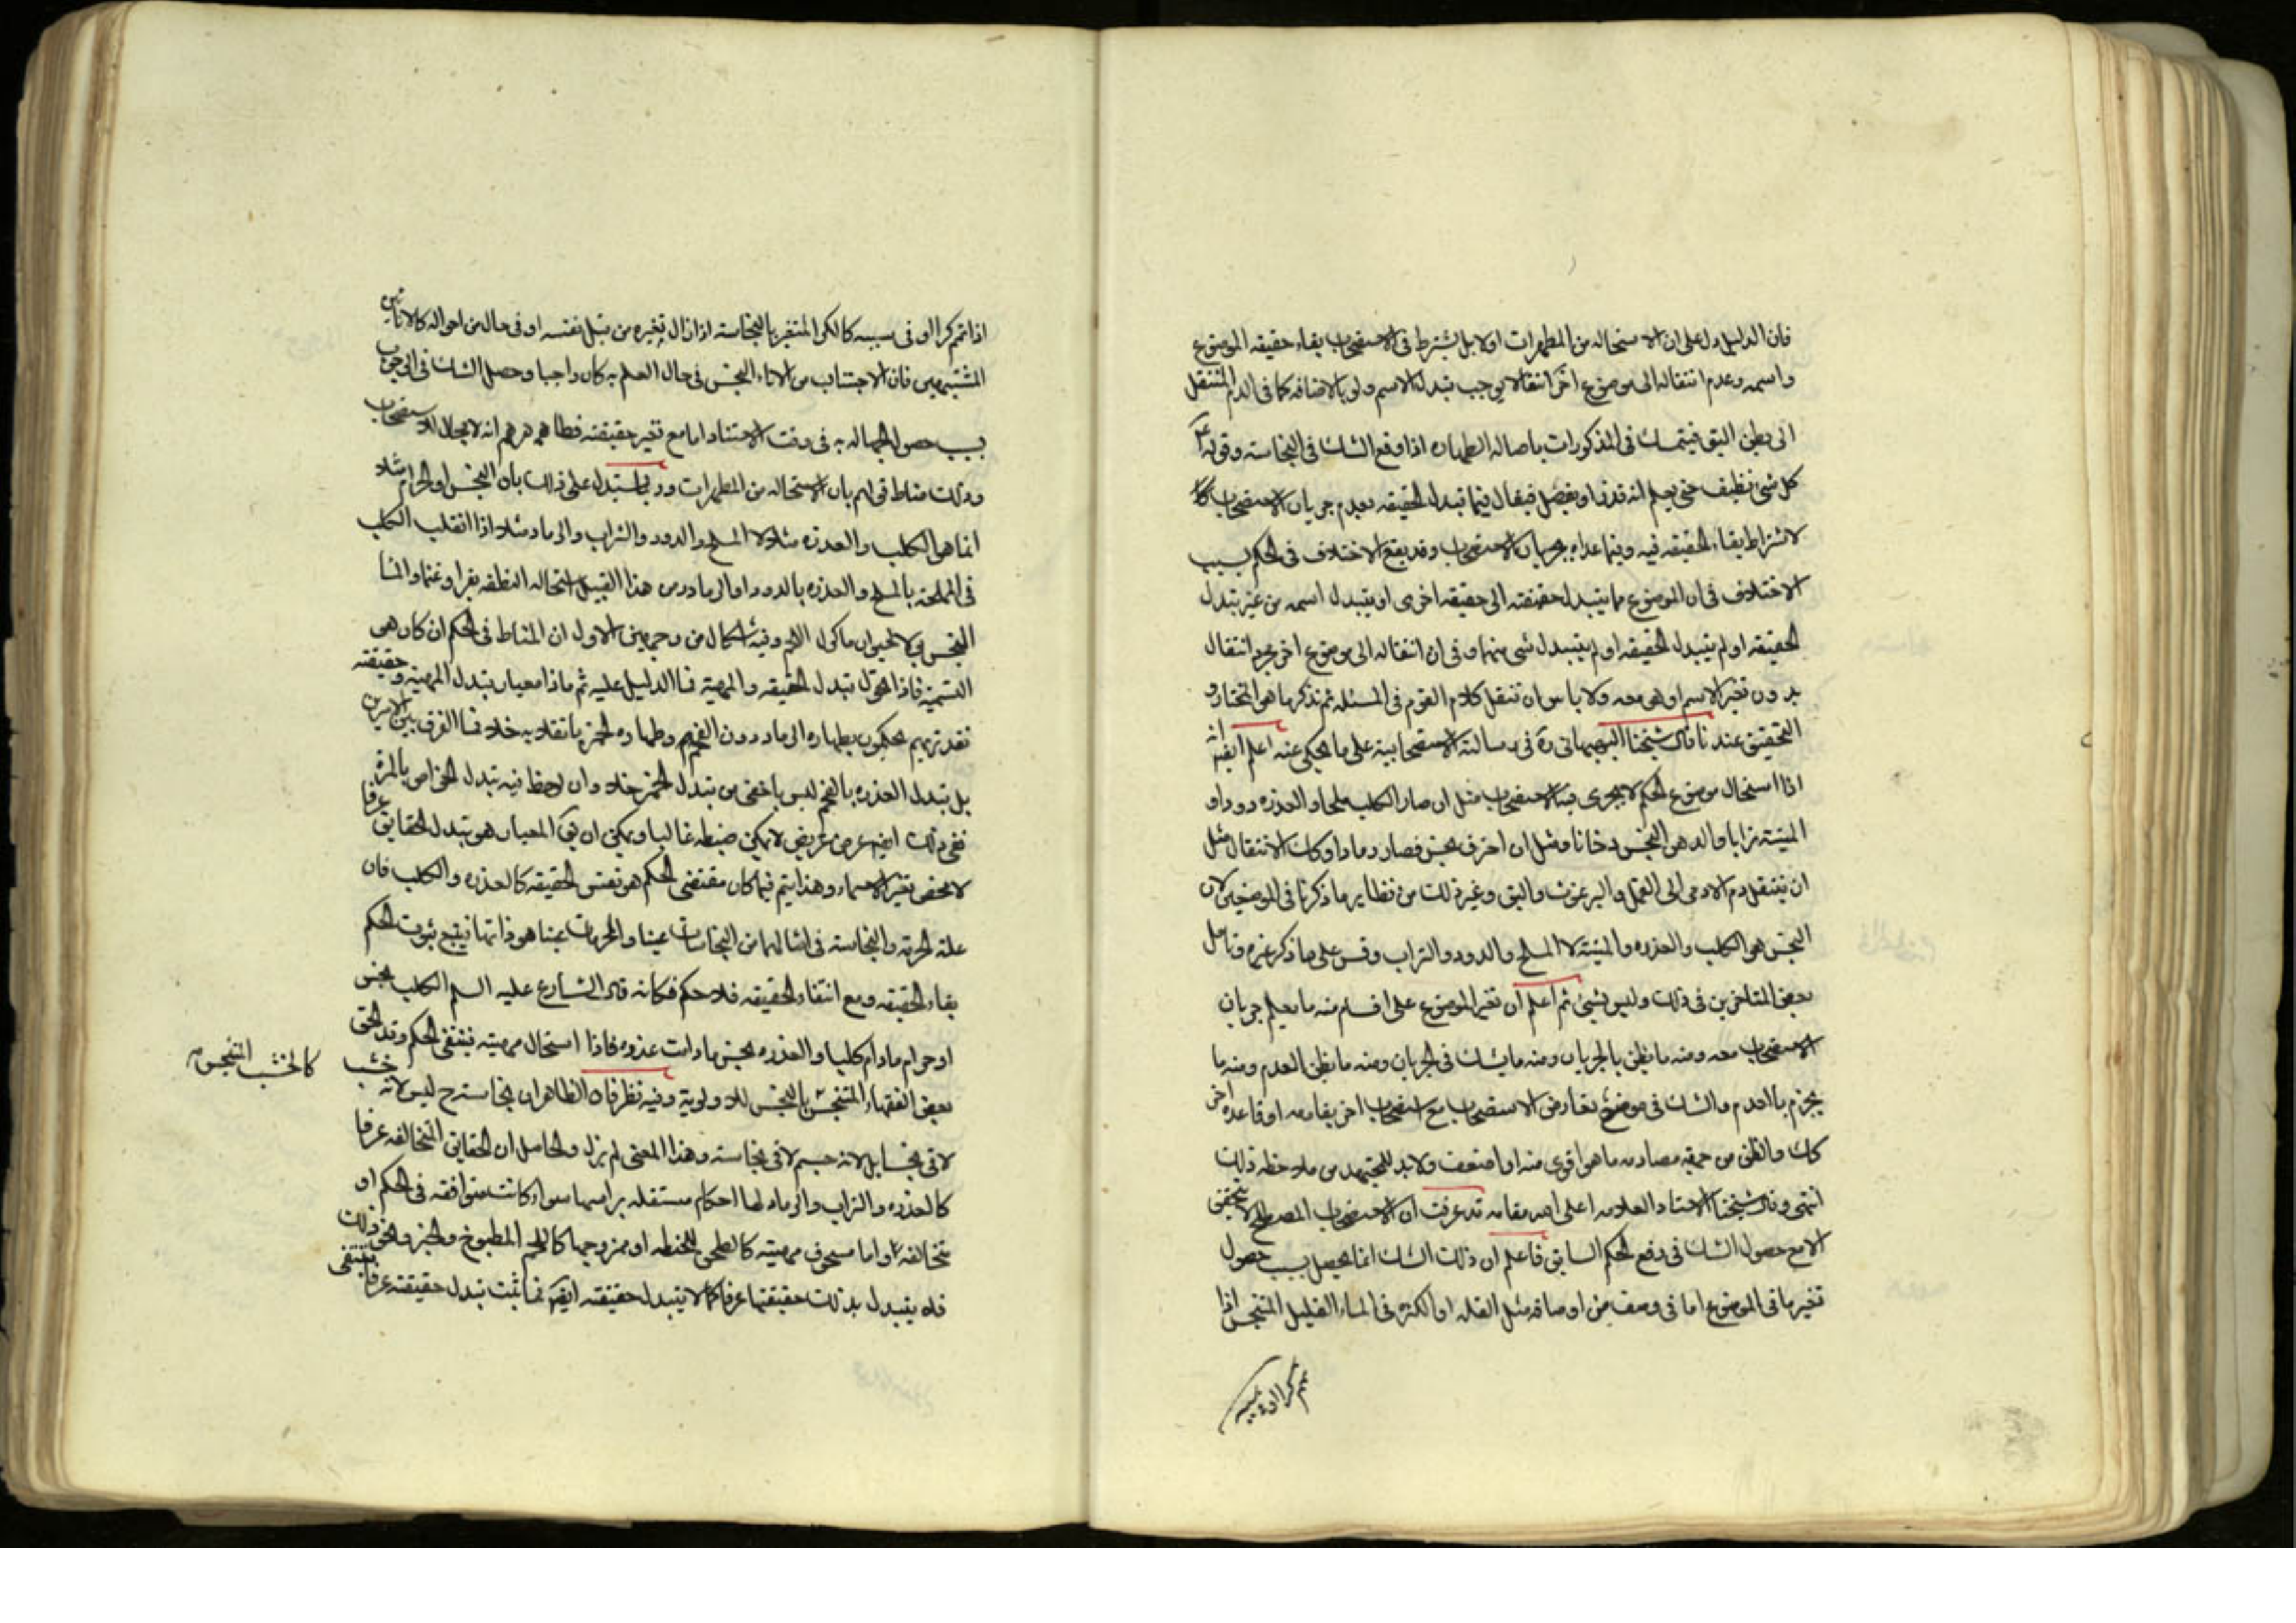 فان الدليل دل على ان الاستحاله من المطهرات اولا بل يشترط فى الاستصحاب بقاء حقيقه الموضوع
واسمه وعدم انتقاله الى موضوع اخر انتقالا يوجب تبدل الاسم ولو بالاضافه كما فى الدم المنتقل
الى بطن البق فيتمسك فى المذكورات باصاله الطهاره اذا وقع الشك فى النجاسته وقوله ع
كل شئ نظيف حتى يعلم انه قذر او يفصل فيقال فيما تبدل الحقيقه بعدم جريان الاستصحاب
لاشتراط بقاء الحقيقه فيه وفيما عداه بجريان الاستصحاب وقد يقع الاختلاف فى الحكم بسبب
الاختلاف فى ان الموضوع مما يتبدل حقيقته الى حقيقه اخرى او يتبدل اسمه من غير تبدل
الحقيقه او لم يتبدل الحقيقه او لم يتبدل شى منهما وفى ان انتقاله الى موضوع اخر مجرد انتقال
بدون تغير الاسم او هى معه ولا باس ان ننقل كلام القوم فى المسئله ثم نذكر ما هو المختار و
التحقيق عندنا قال شيخنا البهبهانى ره فى رسالته الاستصحابية على ما يحكى عنه اعلم ايضا انه
اذا استحال موضوع الحكم لا يجرى فيه الاستصحاب مثل ان صار الكلب ملحا والعذره دودا او
الميته ترابا والدهن النجس دخانا ومثل ان احترق نجس فصار رمادا وكذا الانتقال مثل
ان ينتقل دم الادمى الى القمل والبرغوث والبق وغير ذلك من نظاير ما ذكرنا فى الموضعين لان
النجس هو الكلب والعذره والميتة لا الملح والدود والتراب وقس على ما ذكر غيره وتامل
بعض المتاخرين فى ذلك وليس بشئ ثم اعلم ان تغير الموضوع على اقسام منه ما يعلم جريان
الاستصحاب معه ومنه ما يظن بالجريان ومنه ما يشك فى الجريان ومنه ما يظن العدم ومنه ما
يجزم بالعدم والشك فى موضع تعارض الاستصحاب مع استصحاب اخر يقاومه او قاعده اخرى
كك والظن من جهة مصادمه ما هو اقوى منه او اضعف ولابد للمجتهد من ملاحظه ذلك
انتهى وقال شيخنا الاستاد العلامه اعلى الله مقامه قد عرفت ان الاستصحاب المصطلح لا يتحقق
الا مع حصول الشك فى رفع الحكم السابق فاعلم ان ذلك الشك انما يحصل بسبب حصول
تغير ما فى الموضوع اما فى وصف من اوصافه مثل القله او الكثره فى الماء القليل المتنجس اذا
تمم كرا او فى سببه
اذا تمم كرا او فى سببه كالكر المتغير بالنجاسته اذا زال تغيره من قبل نفسه او فى حال من احواله كالانائين
المشتبهين فان الاجتناب من الاناء النجس فى حال العلم به كان واجبا وحصل الشك فى الوجوب
بسبب حصول الجهاله به فى وقت الاشتباه اما مع تغير حقيقته فظاهرهم انه لا مجال للاستصحاب
وذلك مناط قولهم بان الاستحاله من المطهرات وربما يستدل على ذلك بان النجس او الحرام مثلا
انما هو الكلب والعذره مثلا لا الملح والدود والتراب والرماد مثلا اذا انقلب الكلب
فى المملحة بالملح والعذره بالدود او الرماد ومن هذا القبيل استحاله النطفه بقرا او غنما والماء
النجس بولا لحيوان ماكول اللحم وفيه اشكال من وجهين الاول ان المناط فى الحكم ان كان هو
التسمية فاذا تحول تبدل الحقيقه والمهية فما الدليل عليه ثم ما ذا معيار تبدل المهية وحقيقته
فقد تريهم يحكمون بطهاره الرماد دون الفحم وطهاره الخمر بانقلابه خلا فما الفرق بين الامرين
بل تبدل العذره بالفحم ليس باخفى من تبدل الخمر خلا وان لوحظ فيه تبدل الخواص بالمرة
ففى ذلك ايضا عرض عريض لا يمكن ضبطه غالبا ويمكن ان يق المعيار هو تبدل الحقايق عرفا
لا محض تغير الاسماء وهذا يتم فيما كان مقتضى الحكم هو نفس الحقيقه كالعذره والكلب فان
علة الحرمة والنجاسته فى امثالهما من النجاسات عينا والمحرمات عينا هو ذاتها فيتبع ثبوت الحكم
بقاء الحقيقه ومع انتفاء الحقيقه فلا حكم فكانه قال الشارع عليه السلم الكلب نجس
او حرام ما دام كلبا والعذره نجس ما دامت عذره فاذا استحال مهيته فينتفى الحكم وقد الحق
بعض الفقهاء المتنجس بالنجس للاولوية وفيه نظر فان الظاهر ان نجاسته ح ليس لانه خشب
كالخشب المتنجس
لاقى نجسا بل لانه جسم لاقى نجاسته وهذا المعنى لم يزل والحاصل ان الحقايق المتخالفه عرفا
كالعذره والتراب والرماد لها احكام مستقله براسها سواء كانت متوافقه فى الحكم او
متخالفه واما مسحوق مهيته كالطحن للحنطه او ممزوجها كاللحم المطبوخ والخبز ونحو ذلك
فلا يتبدل بذلك حقيقتها عرفا كما لا يتبدل حقيقته ايضا فما ثبت تبدل حقيقته عرفا فينتفى